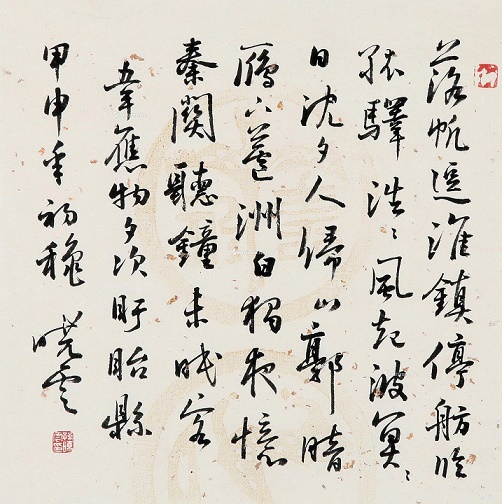 落帆逗淮鎮停舫臨
孤驛浩〻風起波冥〻
日沈夕人歸山郭暗
鴈下蘆洲白獨夜憶
秦關聽鐘未眠客
韋應物夕次盱眙縣
甲申年初穐曉雲